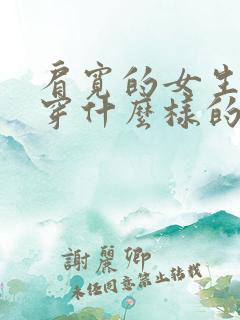 肩寬的女生
穿什麼樣的
謝麗卿
未經同意禁止轉載